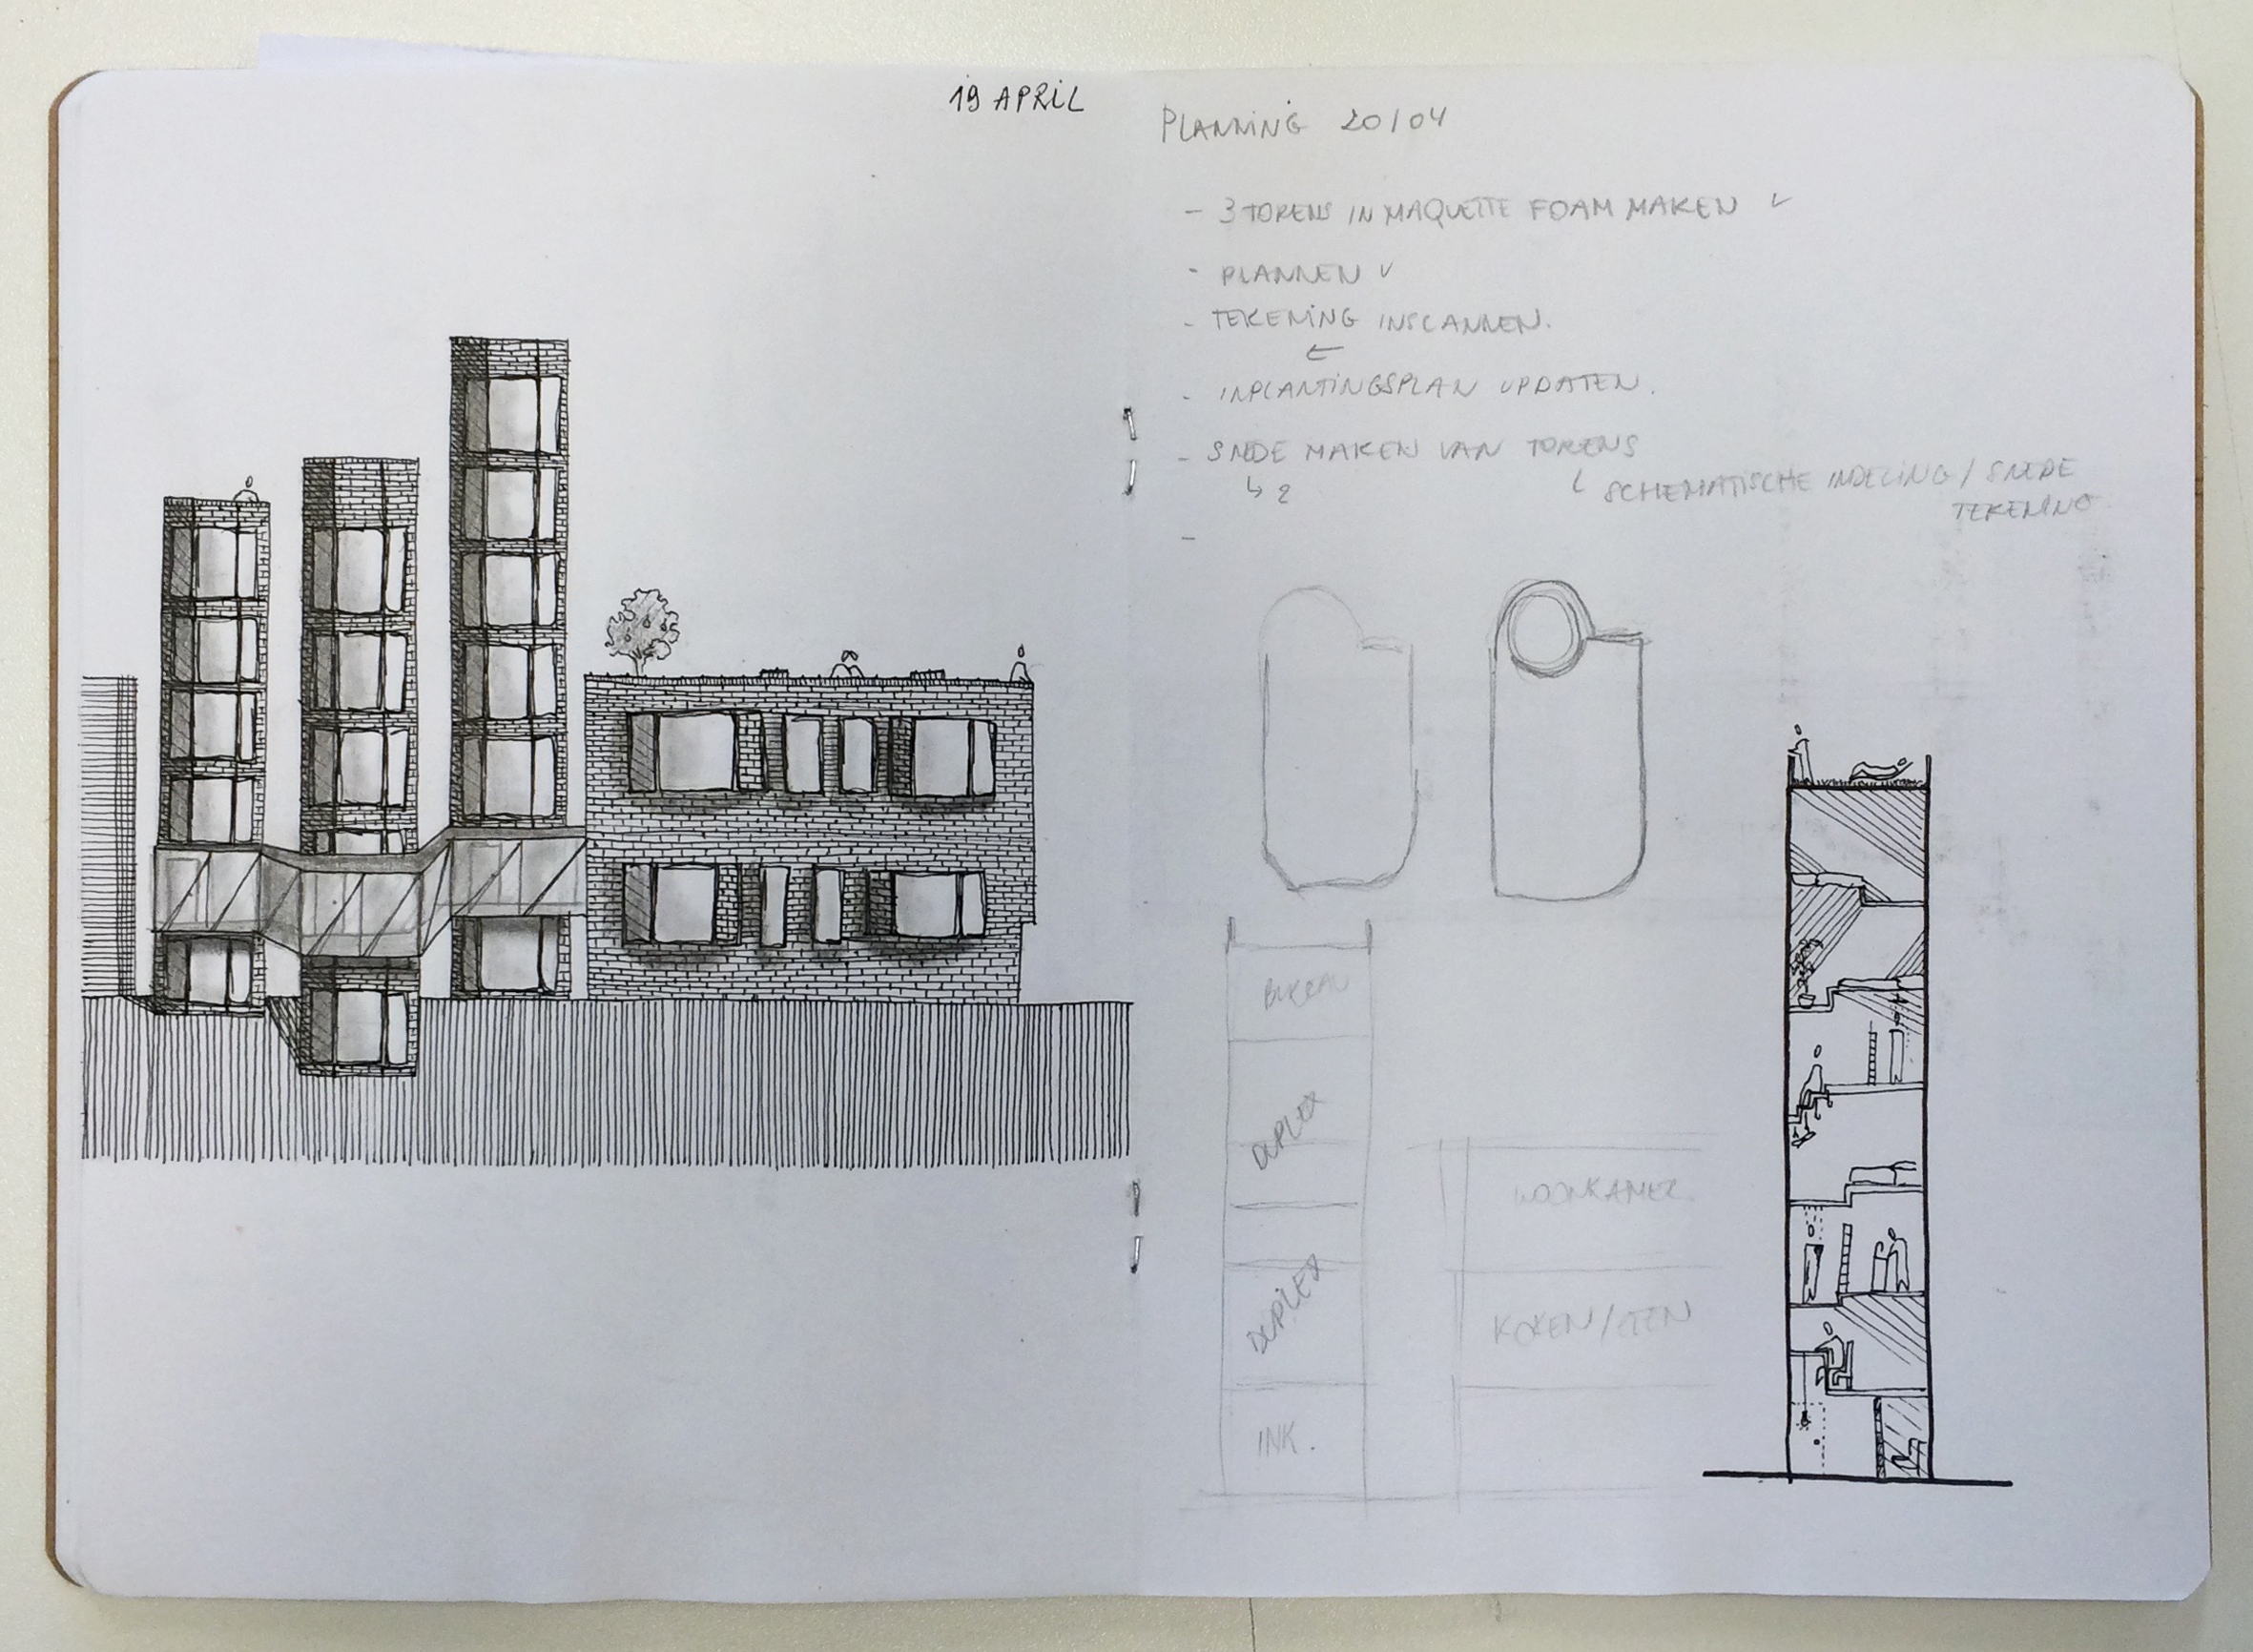 19 APRIL
PLANNING 20/04
- 3 TORENS IN MAQUETTE FOAM MAKEN ✓
- PLANNEN ✓
- TEKENING INSCANNEN.
- INPLANTINGSPLAN UPDATEN.
- SNEDE MAKEN VAN TORENS
↳ 2
↳ SCHEMATISCHE INDELING / SNEDE
TEKENING
-
BUREAU
DUPLEX
DUPLEX
INK.
WOONKAMER.
KOKEN/ETEN